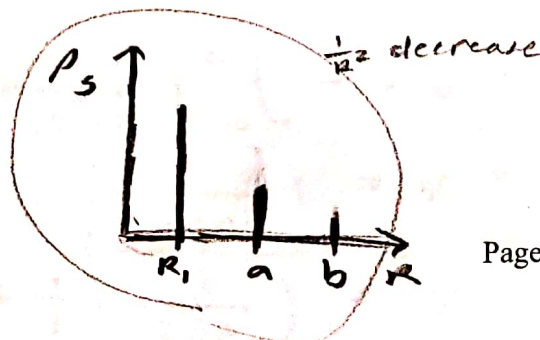 1/R² decrease
ρs
R₁ a b R
Page